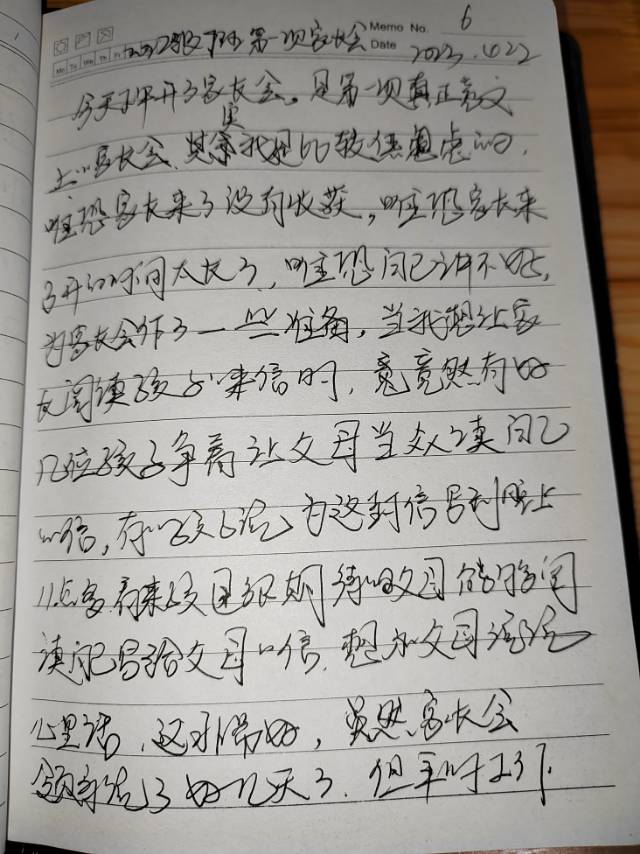 6
Memo No.
Mo Tu We Th Fr
第一次家长会 Date 2023.4.22
今天下午开了家长会,是第一次真正意义
上的家长会,其实我是比较焦虑的,
唯恐家长来了没有收获,唯恐家长来
了开的时间太长了,唯恐自己讲不好,
为家长会作了一些准备,当我想让家
长阅读孩子来信时,竟竟然有好
几位孩子争着让父母当众读自己
的信,有的孩子说为这封信写到晚上
11点多,看来孩子很期待父母能够阅
读自己写给父母的信,想和父母说说
心里话,这非常好,虽然家长会
说了好几天了,但平时工作